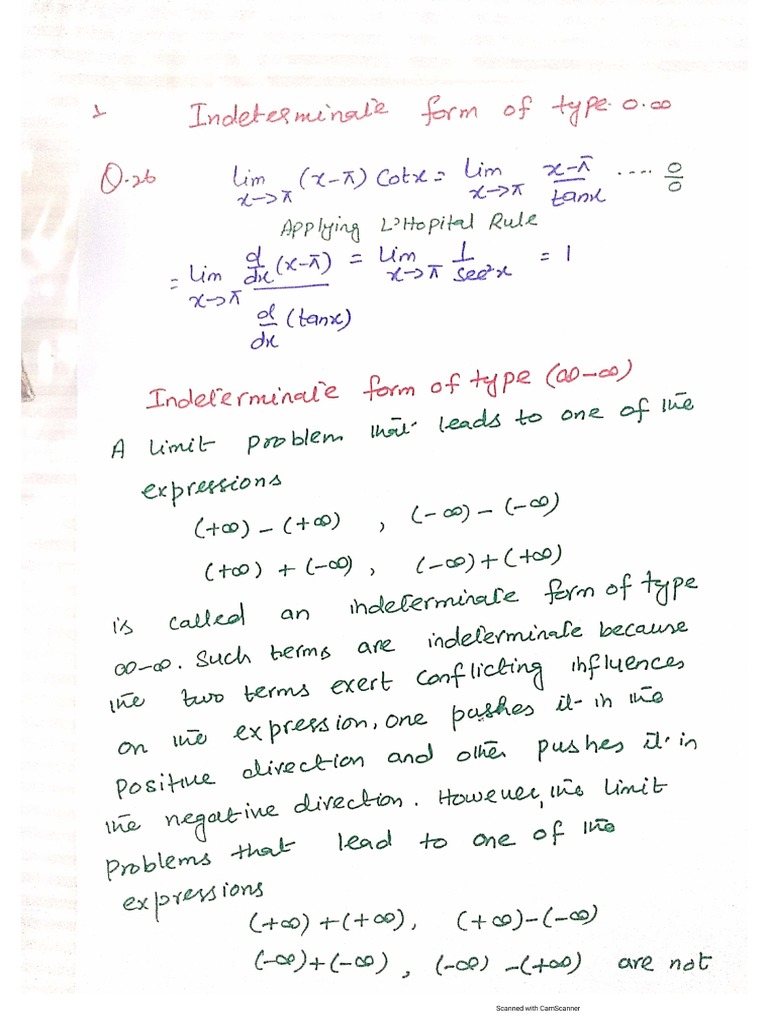 1 Indeterminate form of type 0.∞
Q.26 lim x→π (x-π) Cotx = Lim x→π x-π/tanx .... 0/0
Applying L'Hopital Rule
= Lim x→π d/dx (x-π) / d/dx (tanx) = Lim x→π 1/sec²x = 1
Indeterminate form of type (∞-∞)
A limit problem that leads to one of the
expressions
(+∞) - (+∞) , (-∞) - (-∞)
(+∞) + (-∞) , (-∞) + (+∞)
is called an indeterminate form of type
∞-∞. Such terms are indeterminate because
the two terms exert conflicting influences
on the expression, one pushes it in the
positive direction and other pushes it in
the negative direction. However, the limit
problems that lead to one of the
expressions
(+∞) + (+∞), (+∞) - (-∞)
(-∞) + (-∞) , (-∞) - (+∞) are not
Scanned with CamScanner